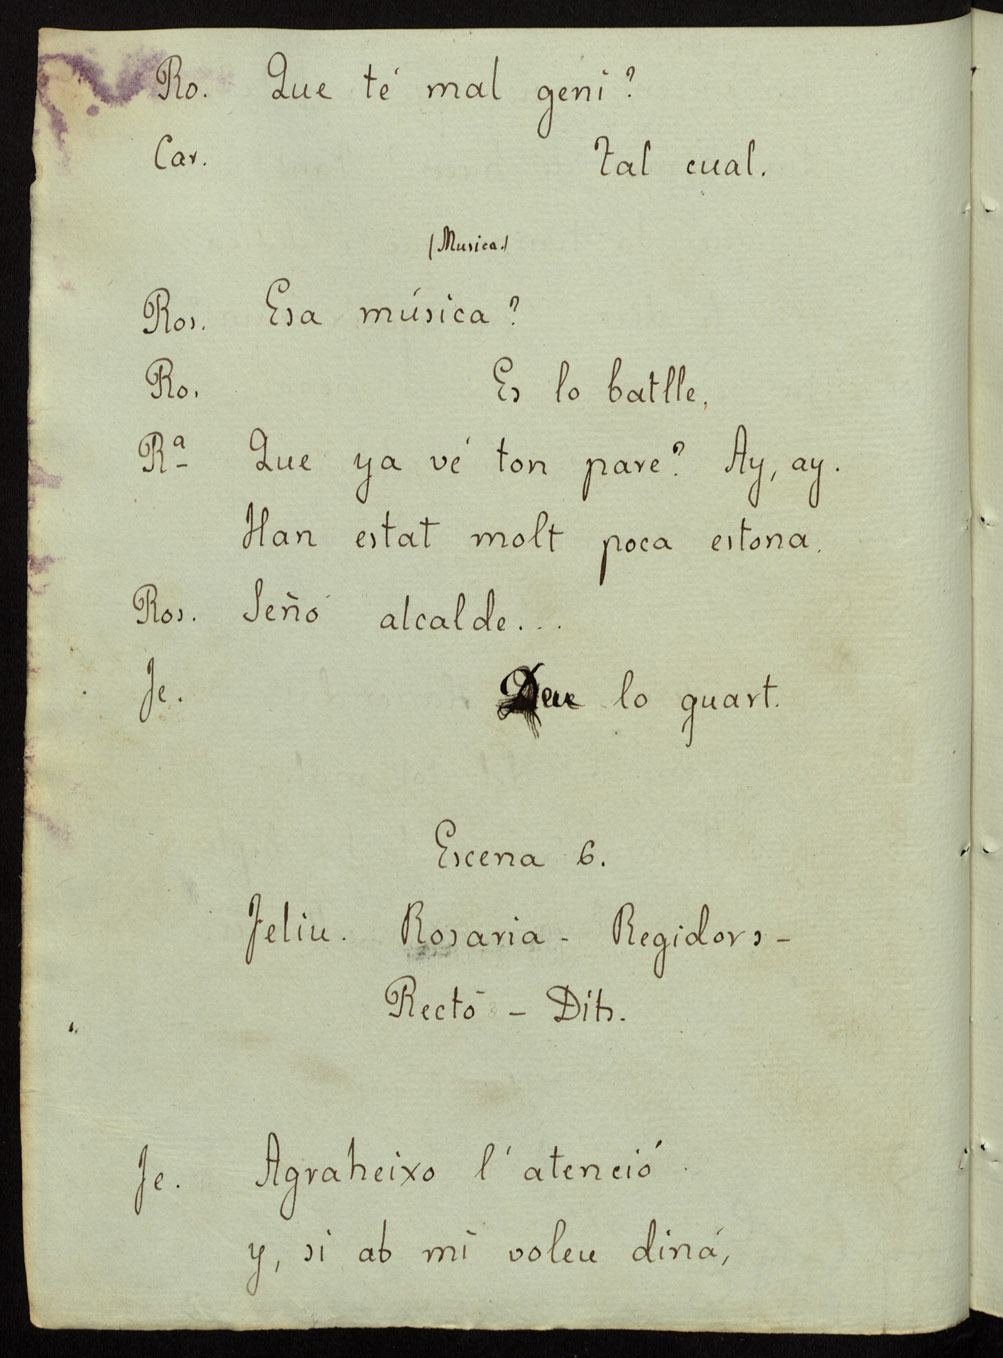 Ro. Que té mal geni?
Car. Tal cual.
(Musica.)
Ros. Esa música?
Ro. Es lo batlle.
Rª Que ya vé ton pare? Ay, ay.
Han estat molt poca estona.
Ros. Señó alcalde...
Je. Deu lo guart.
Escena 6.
Feliu. Rosaria - Regidors -
Rectó - Dits.
Je. Agraheixo l'atenció
y, si ab mi voleu diná,